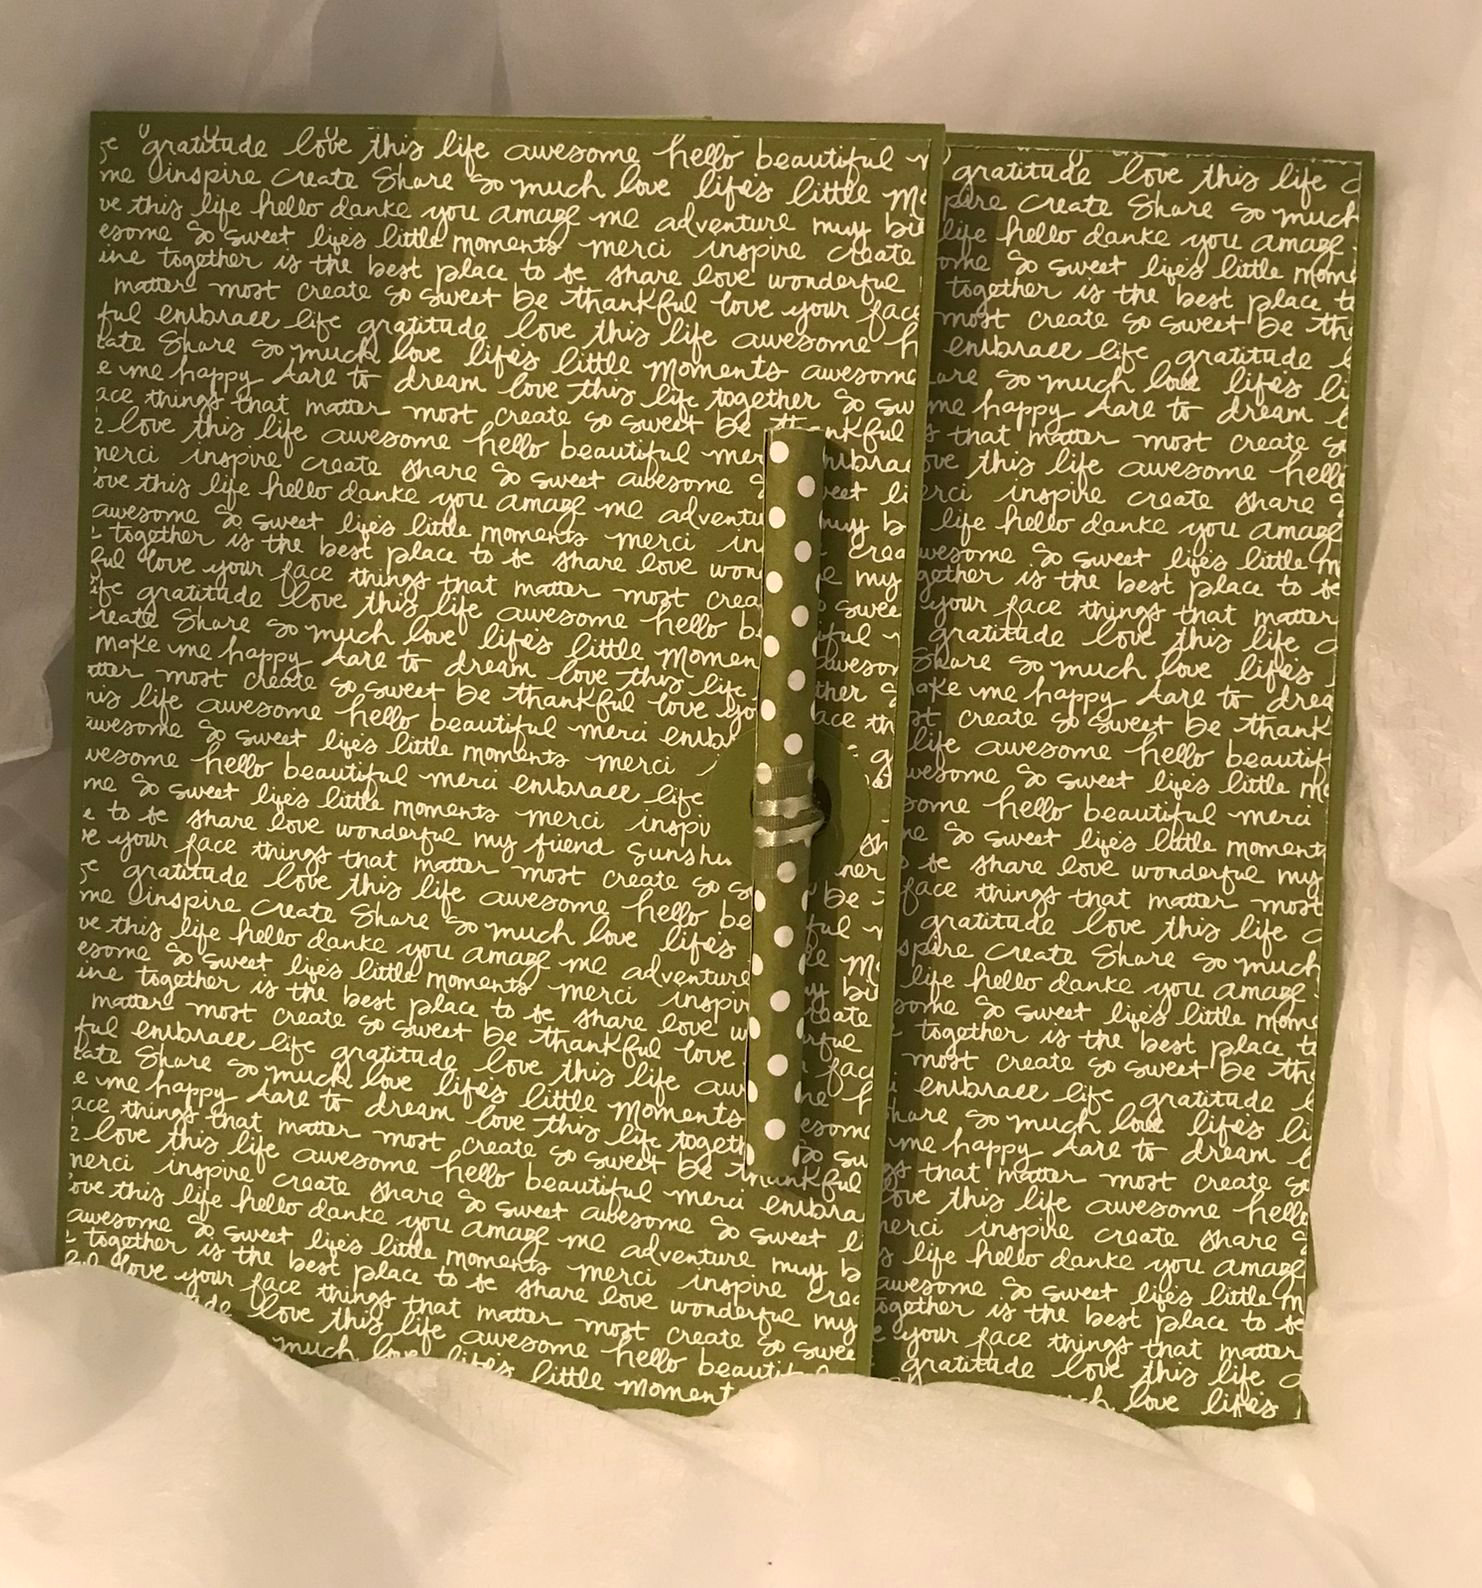 gratitude love this life awesome hello beautiful
me inspire create share so much love life's little
this life hello danke you amaze me adventure my
so sweet life's little moments merci inspire create
together is the best place to be share love wonderful
matter most create so sweet be thankful love your face
embrace life gratitude love this life awesome
share so much love life's little moments awesome
me happy dare to dream love this life together so
things that matter most create so sweet be thankful
love this life awesome hello beautiful
inspire create share so sweet awesome
this life hello danke you amaze me
awesome so sweet life's little moments merci
together is the best place to be share love
love your face things that matter most
gratitude love this life awesome hello
share so much love life's little
make me happy dare to dream love this life
most create so sweet be thankful love
life awesome hello beautiful merci
awesome so sweet life's little moments merci
hello beautiful merci embrace life
me so sweet life's little moments merci
to be share love wonderful my friend
your face things that matter most create so
gratitude love this life awesome hello
me inspire create share so much love life's
this life hello danke you amaze me adventure
so sweet life's little moments merci
together is the best place to be share love
matter most create so sweet be thankful love
embrace life gratitude love this life
share so much love life's little moments
me happy dare to dream love this life
things that matter most create so sweet be thankful
love this life awesome hello beautiful merci
inspire create share so sweet awesome so sweet
this life hello danke you amaze me adventure my
awesome so sweet life's little moments merci inspire
together is the best place to be share love wonderful my
love your face things that matter most create so
love this life awesome hello
much love life's little
gratitude love this life
create share so much
life hello danke you amaze
so sweet life's little
together is the best place
most create so sweet be
embrace life gratitude
so much love life's
me happy dare to dream
that matter most create
this life awesome hello
inspire create share
life hello danke you amaze
so sweet life's little
is the best place to be
your face things that matter
gratitude love this life
share so much love life's
me happy dare to dream
create so sweet be
life awesome hello
so sweet life's little
hello beautiful merci
so sweet life's little moments
be share love wonderful my
face things that matter most
gratitude love this life
create share so much
life hello danke you amaze
so sweet life's little
together is the best place
most create so sweet be
embrace life gratitude
share so much love life's
me happy dare to dream
that matter most create
love this life awesome hello
inspire create share
life hello danke you amaze
awesome so sweet life's little
together is the best place to be
your face things that matter
gratitude love this life
love life's